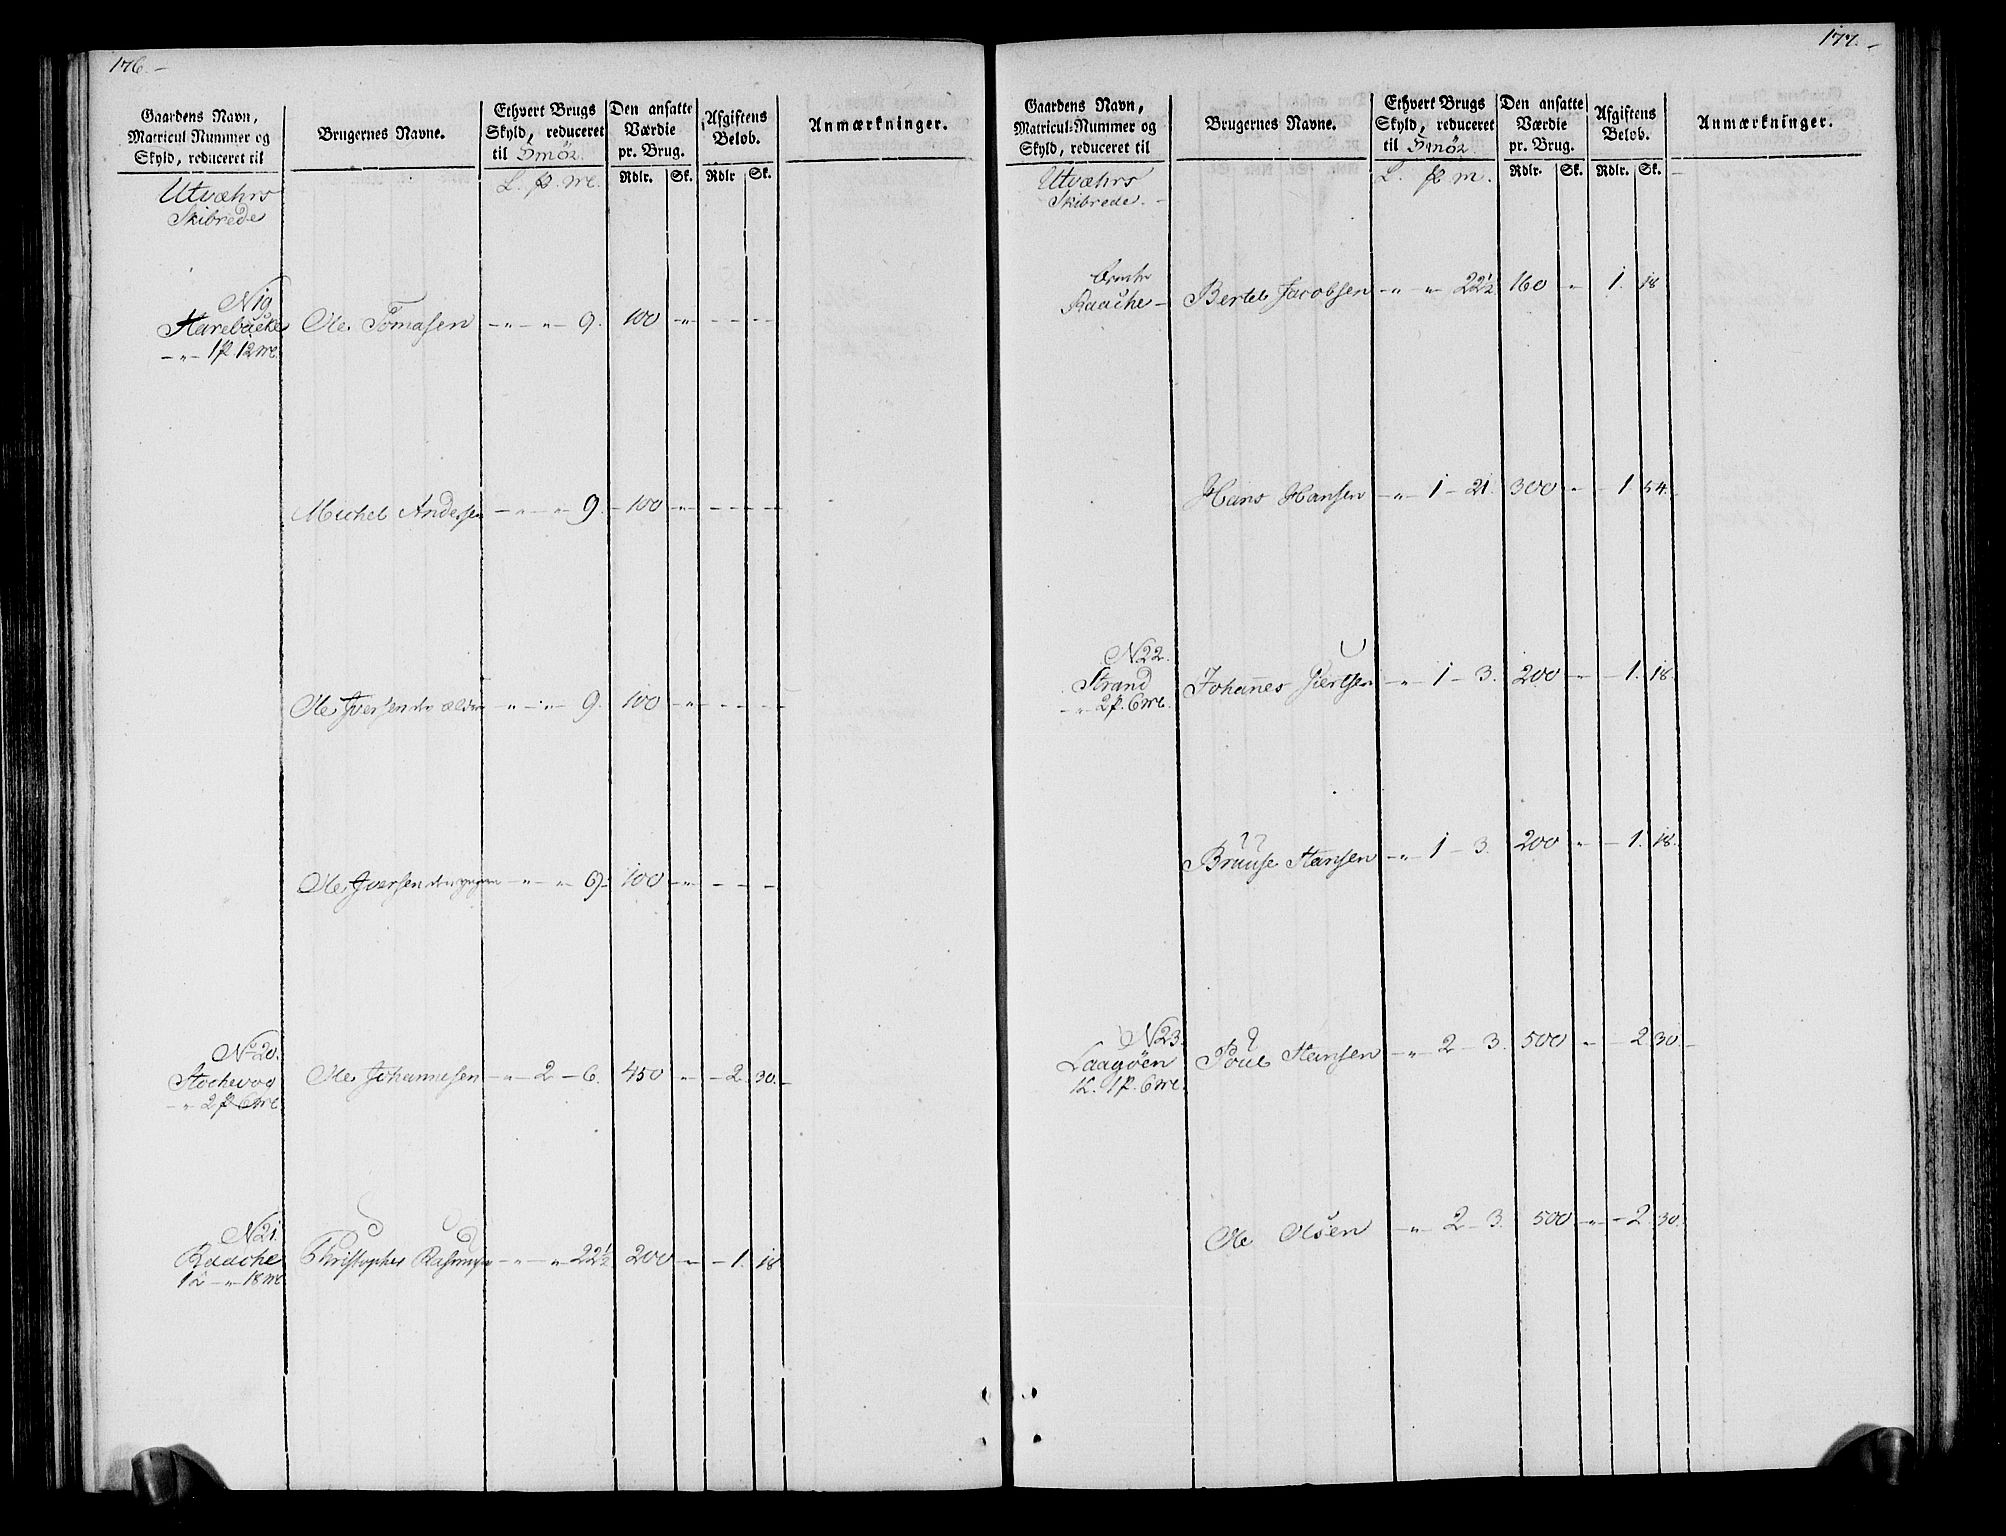 176.-
Gaardens Navn,
Matricul Nummer og
Skyld, reduceret til
Brugernes Navne.
Ethvert Brugs
Skyld, reduceret
til Smör.
Den ansatte
Værdie
pr. Brug.
Afgiftens
Belob.
Anmærkninger.
L. p. me.
Rdlr. Sk. Rdlr Sk.
Utvæhrs
Skibrede
N19
Harebacke
- " - 1p 12me.
Ole Tomasen - " - " - 9. 100 - " - - - -
Michel Andersen - " - " 9. 100 - " - - - -
Ole Iversen den ælder - " - " - 9. 100 - " - - - -
Ole Iversen den yngre - " - " 9. 100 - " - - - -
No 20.
Stochevog
- " 2p 6me
Ole Johannesen - " - 2 - 6. 450 " - 2. 30. -
N21.
Raache
1L - " - 18me
Christopher Rasmusen - " - " 22½ 200 - " - 1. 18
177. -
Gaardens Navn,
Matricul-Nummer og
Skyld, reduceret til
Brugernes Navne.
Ethvert Brugs
Skyld, reduceret
til Smör.
Den ansatte
Værdie
pr. Brug.
Afgiftens
Belob.
Anmærkninger.
L. p m.
Rdlr. Sk. Rdlr. Sk.
Utvæhrs
Skibrede. -
Raache - Bertel Jacobsen - " - " 22½ 160 " 1. 18
Hans Hansen - " - 1 - 21. 300 - " - 1 54.
N22.
Strand
- " 2p. 6me.
Johannes Siertsen - " - 1 - 3. 200 - " - 1. 18.
Bruuse Hansen - " - 1 - 3. 200 " - 1. 18.
N23.
Laagöen
1L. 1p. 6me.
Poul Hansen - " 2 - 3. 500 " - 2 30. -
Ole Olsen - " - 2 - 3. 500 - " - 2. 30.